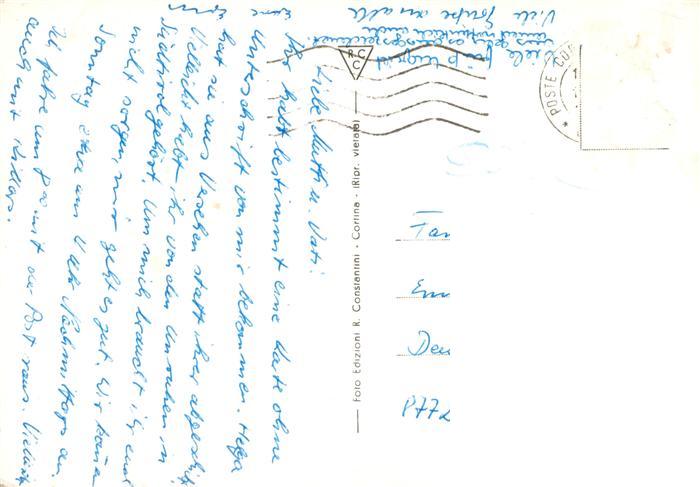 Liebe Mutti u. Vati!
Ihr habt bestimmt eine Karte ohne
Unterschrift von mir bekommen. Helga
hat sie aus Versehen statt ihrer abgeschickt
Vielleicht habt ihr von den Unruhen in
Südtirol gehört. Um mich braucht ihr euch
nicht sorgen, mir geht es gut. Wir kommen
Sonntag etwa um Uhr Nachmittags an.
Ich fahre um mit der Post raus. Vielleicht
auch mit
Viele Grüße an alle
R C C
POSTE
Foto Edizioni R. Constantini - Cortina - (Ripr. vietata)
Fa
Em
Deu